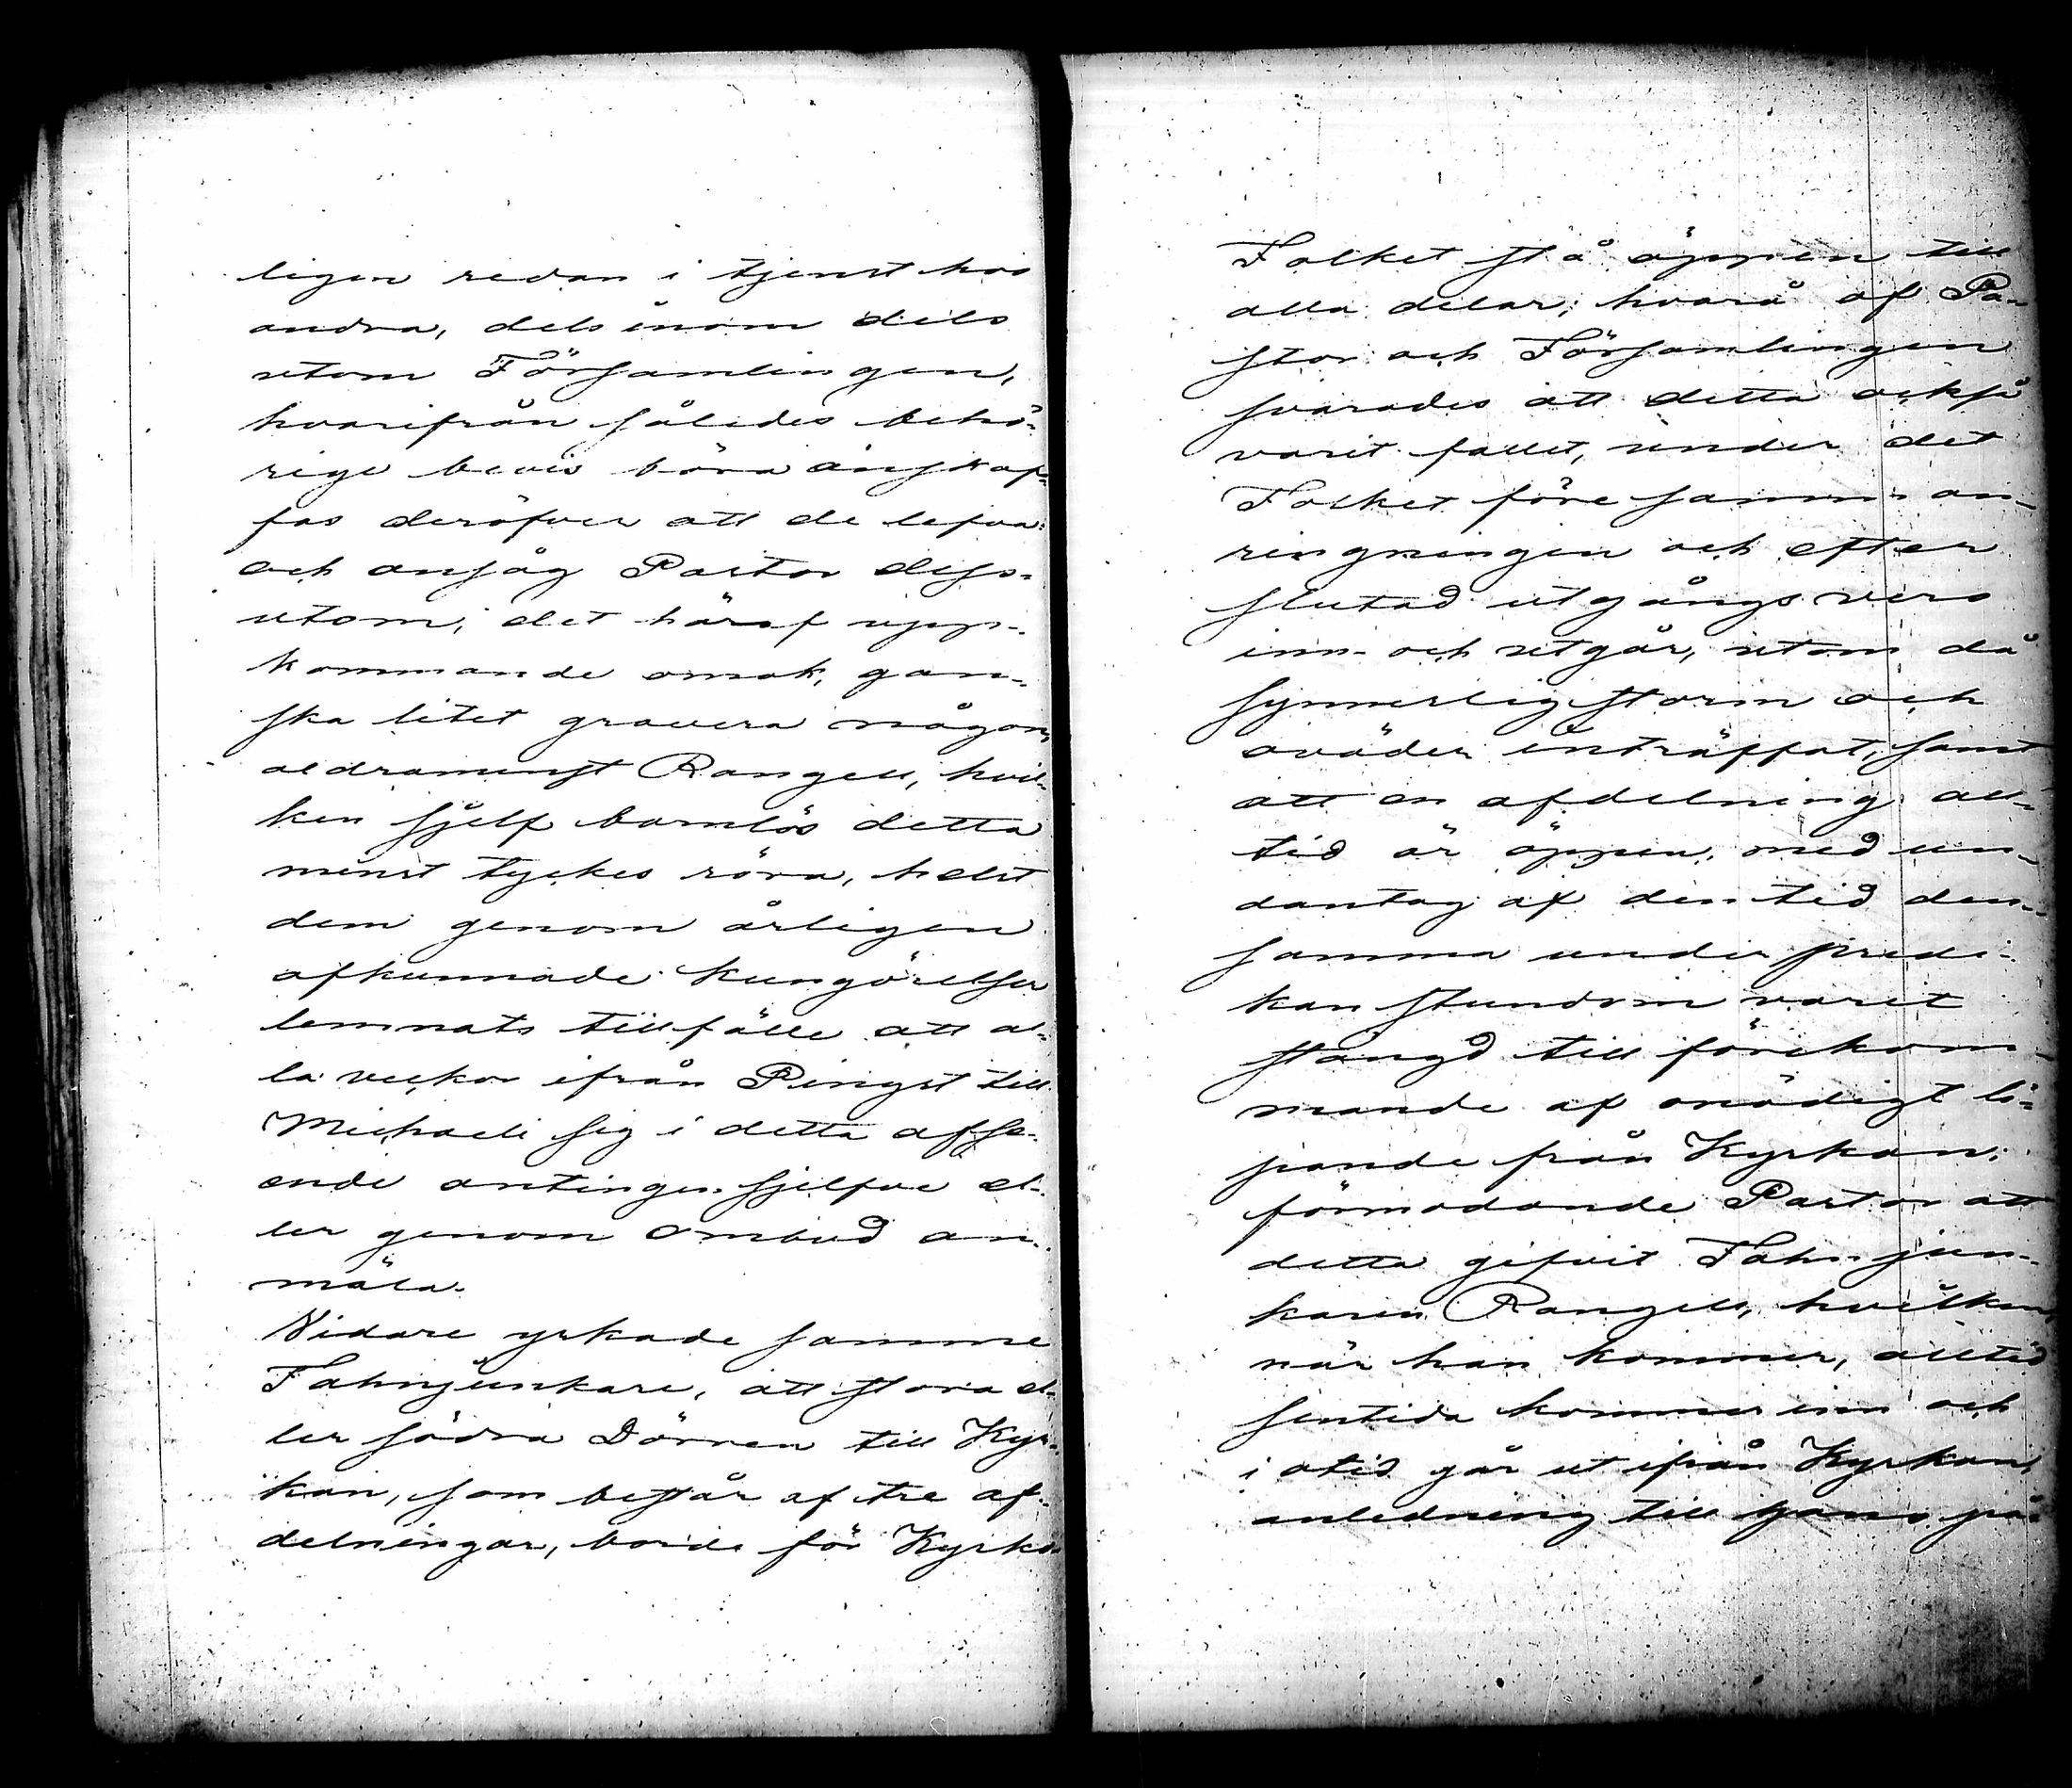 ligen redan i tjenst hos
andra, dels inom dels
utom Församlingen,
hvarifrån således behö-
rige bevis böra anskaf-
fas deröfver att de lefva:
och ansåg Pastor dess-
utom, det häraf upp-
kommande omak, gan-
ska litet gravera någon,
aldraminst Rangell, hvil-
ken sjelf barnlös detta
minst tyckes röra, helst
dem genom årligen
afkunnade kungörelser
lemnats tillfälle att al-
la veckor ifrån Pingst till
Michaeli sig i detta afse-
ende antingen sjelfve el-
ler genom ombud an-
mäla.
Vidare yrkade samme
Fahnjunkare, att stora el-
ler södra Dörren till Kyr-
kan, som består af tre af-
delningar, borde för Kyrko-
Folket stå öppen till
alla delar; hvarå af Pa-
stor och Församlingen
svarades att detta också
varit fallet, under det
Folket före samman-
ringningen och efter
slutad utgångsvers
inn- och utgår, utom då
synnerlig storm och
oväder inträffat, samt
att en afdelning all-
tid är öppen, med un-
dantag af den tid den-
samma under predi-
kan stundom varit
stängd till förekom-
mande af onödigt lö-
pande från Kyrkan:
förmodande Pastor att
detta gifvit Fahnjun-
karen Rangell, hvilken,
när han kommer, alltid
sentida kommer inn och
i otid går ut ifrån Kyrkan,
anledning till hans på-